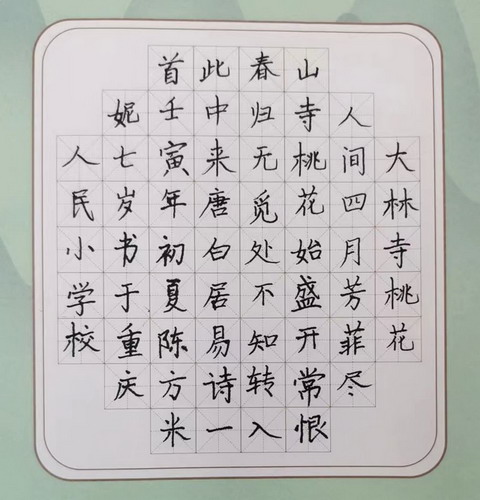 大林寺桃花
人间四月芳菲尽
山寺桃花始盛开常恨
春归无觅处不知转入
此中来唐白居易诗一
首壬寅年初夏陈方米
妮七岁书于重庆
人民小学校